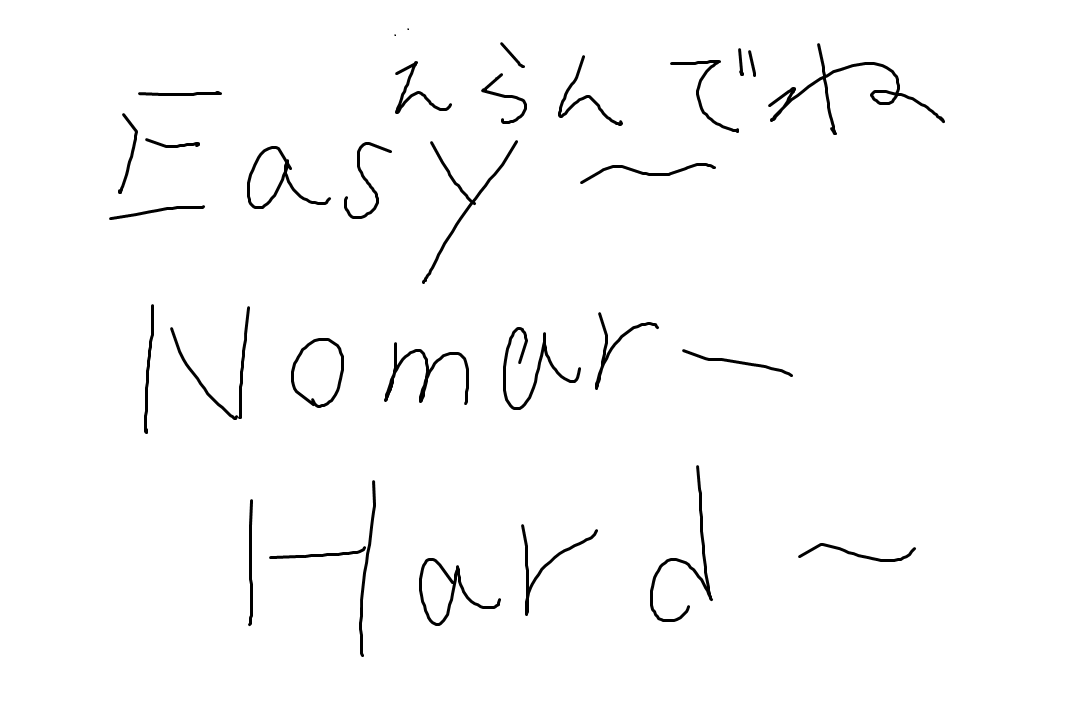 えらんでね
Easy〜
Nomar〜
Hard〜